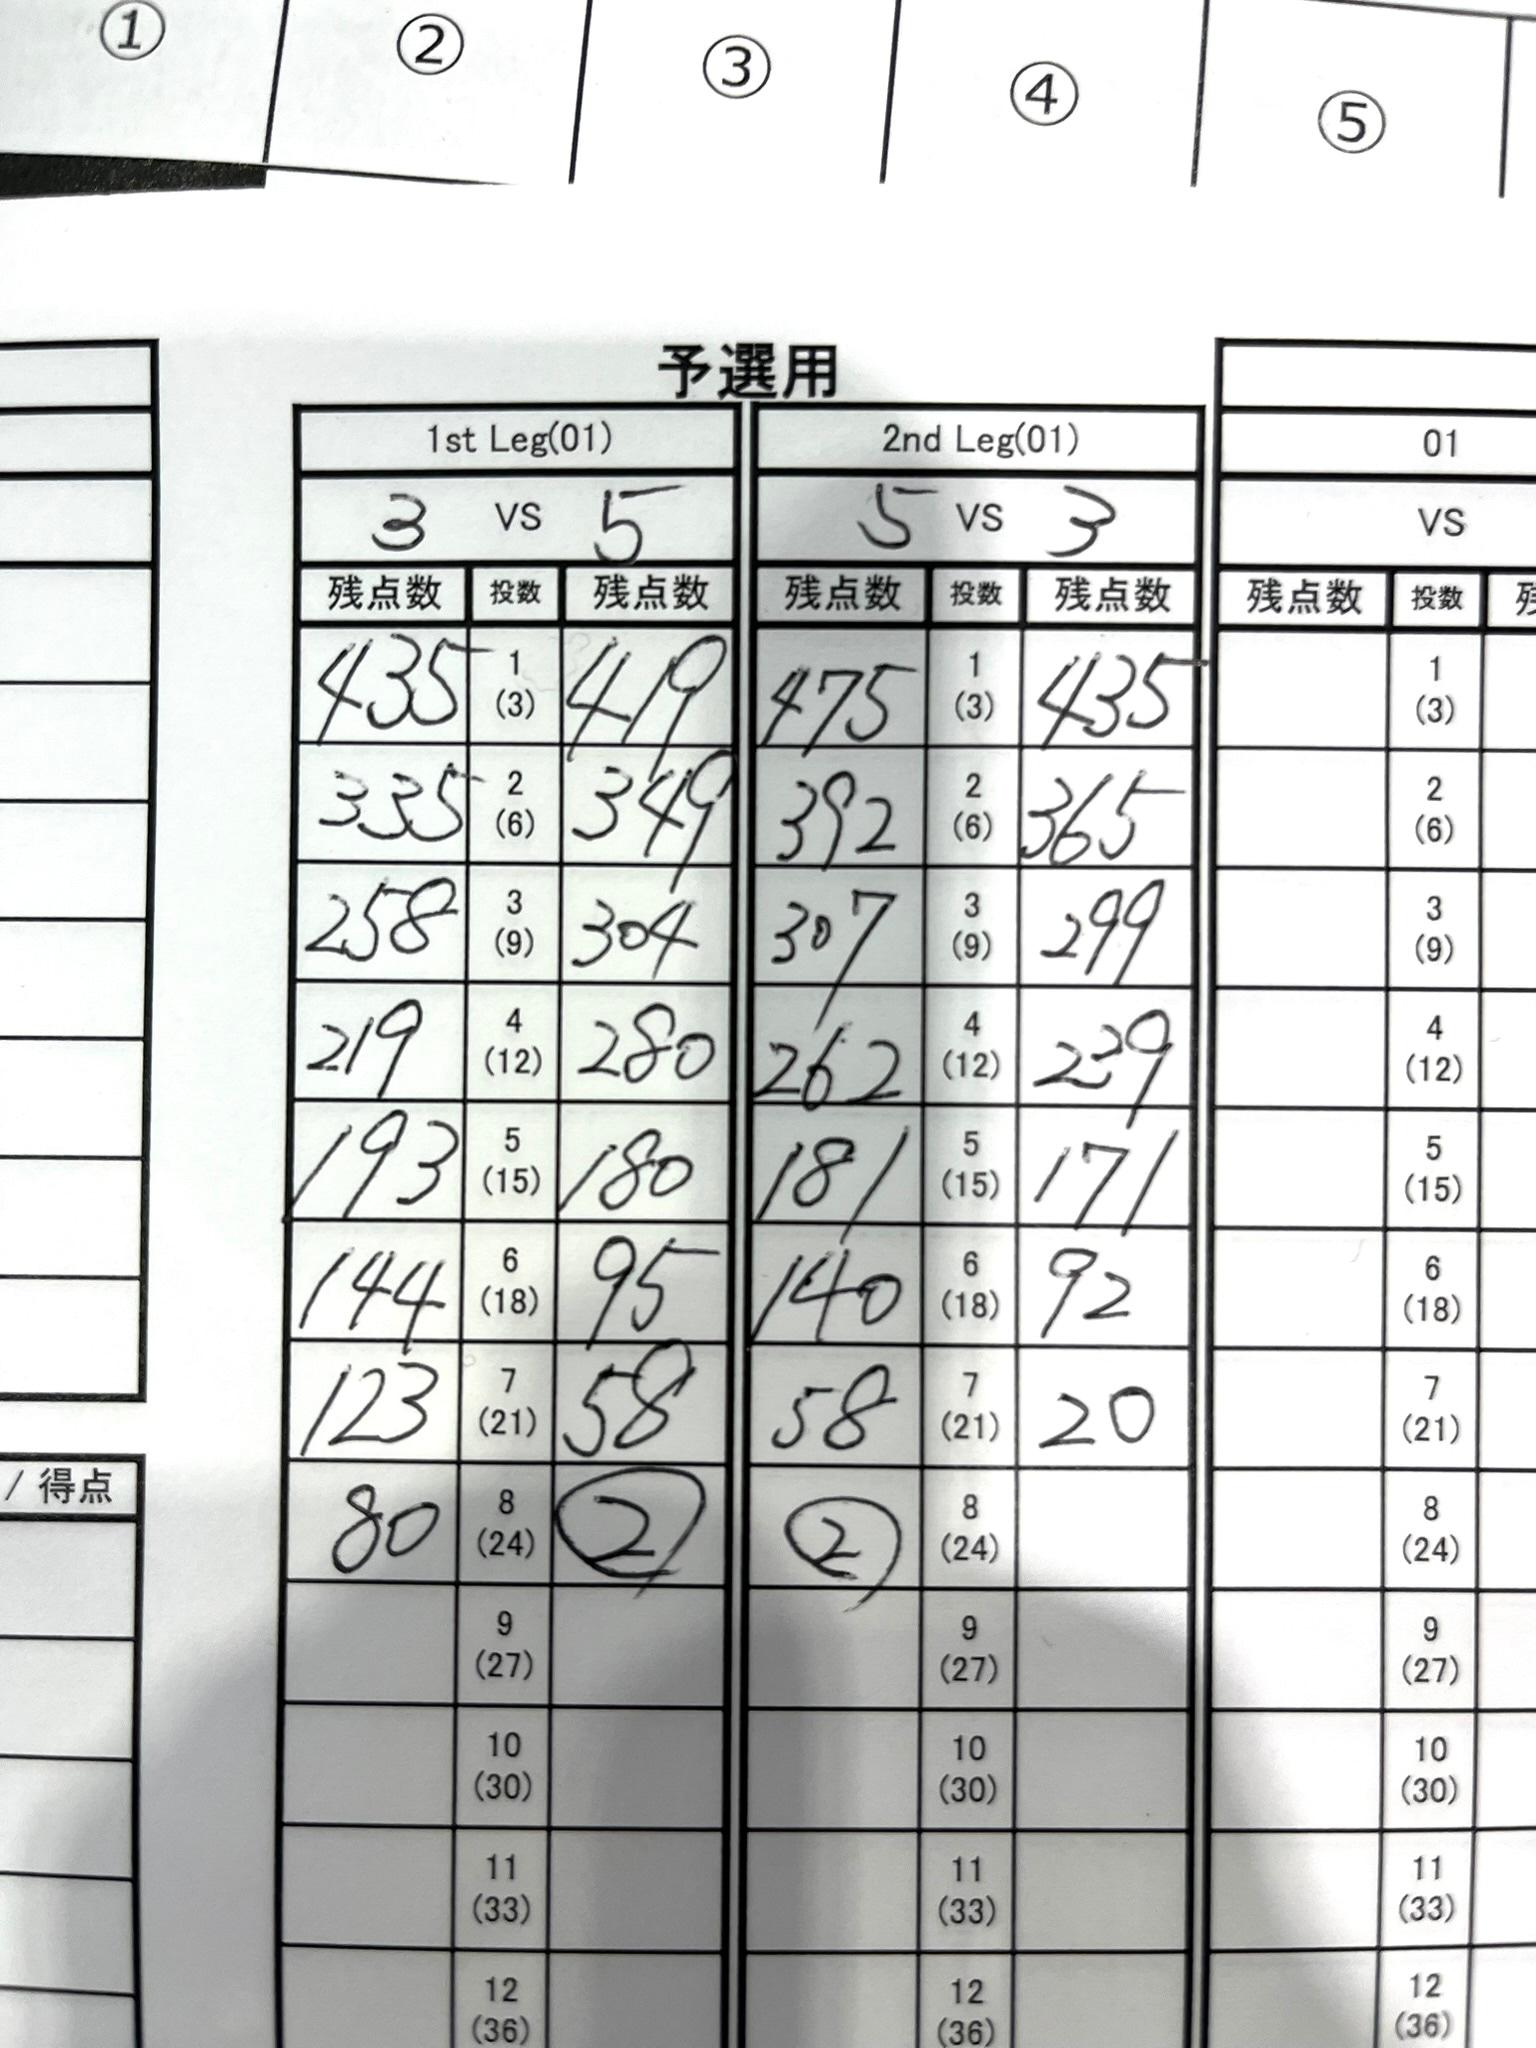 ① ② ③ ④ ⑤
予選用
1st Leg(01) 2nd Leg(01) 01
3 VS 5 5 VS 3 VS
残点数 投数 残点数 残点数 投数 残点数 残点数 投数
435 1 419 475 1 435 1
(3) (3) (3)
335 2 349 392 2 365 2
(6) (6) (6)
258 3 304 307 3 299 3
(9) (9) (9)
219 4 280 262 4 239 4
(12) (12) (12)
193 5 180 181 5 171 5
(15) (15) (15)
144 6 95 140 6 92 6
(18) (18) (18)
123 7 58 58 7 20 7
(21) (21) (21)
/ 得点 80 8 2 2 8 8
(24) (24) (24)
9 9 9
(27) (27) (27)
10 10 10
(30) (30) (30)
11 11 11
(33) (33) (33)
12 12 12
(36) (36) (36)